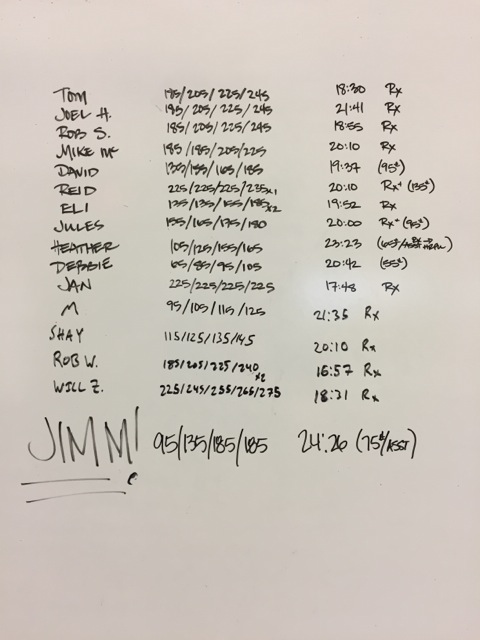 TOM 185/205/225/245 18:30 Rx
JOEL H. 185/205/225/245 21:41 Rx
ROB S. 185/205/225/245 18:55 Rx
MIKE Mc 185/185/205/225 20:10 Rx
DAVID 135/155/165/185 19:37 (95#)
REID 225/225/225/235x1 20:10 Rx+ (135#)
ELI 135/135/155/185x2 19:52 Rx
JULES 155/165/175/180 20:00 Rx+ (95#)
HEATHER 105/125/155/165 23:23
DEBBIE 65/85/95/105 20:42 (55#)
JAN 225/225/225/225 17:48 Rx
M 95/105/115/125 21:35 Rx
SHAY 115/125/135/145 20:10 Rx
ROB W. 185/205/225/240x2 16:57 Rx
WILL Z. 225/245/255/265/275 18:31 Rx
JIMM! 95/135/185/185 24:26 (75#/ASST)